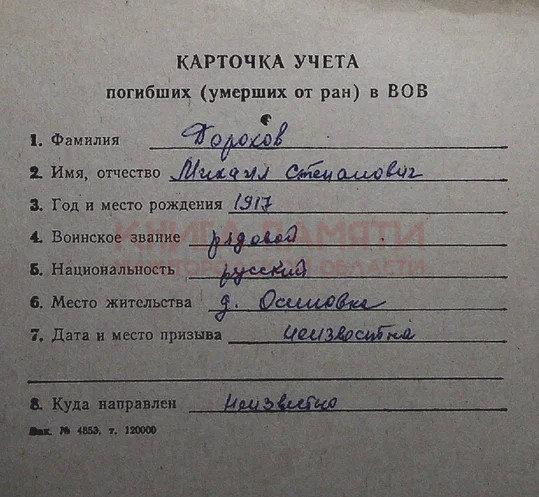 КАРТОЧКА УЧЕТА
погибших (умерших от ран) в ВОВ
1. Фамилия Дорохов
2. Имя, отчество Михаил Степанович
3. Год и место рождения 1917
КНИГА ПАМЯТИ
4. Воинское звание рядовой
ОБЛАСТИ
5. Национальность русский
6. Место жительства д. Осиновка
7. Дата и место призыва неизвестна
8. Куда направлен неизвестно
Зак. № 4853, т. 120000